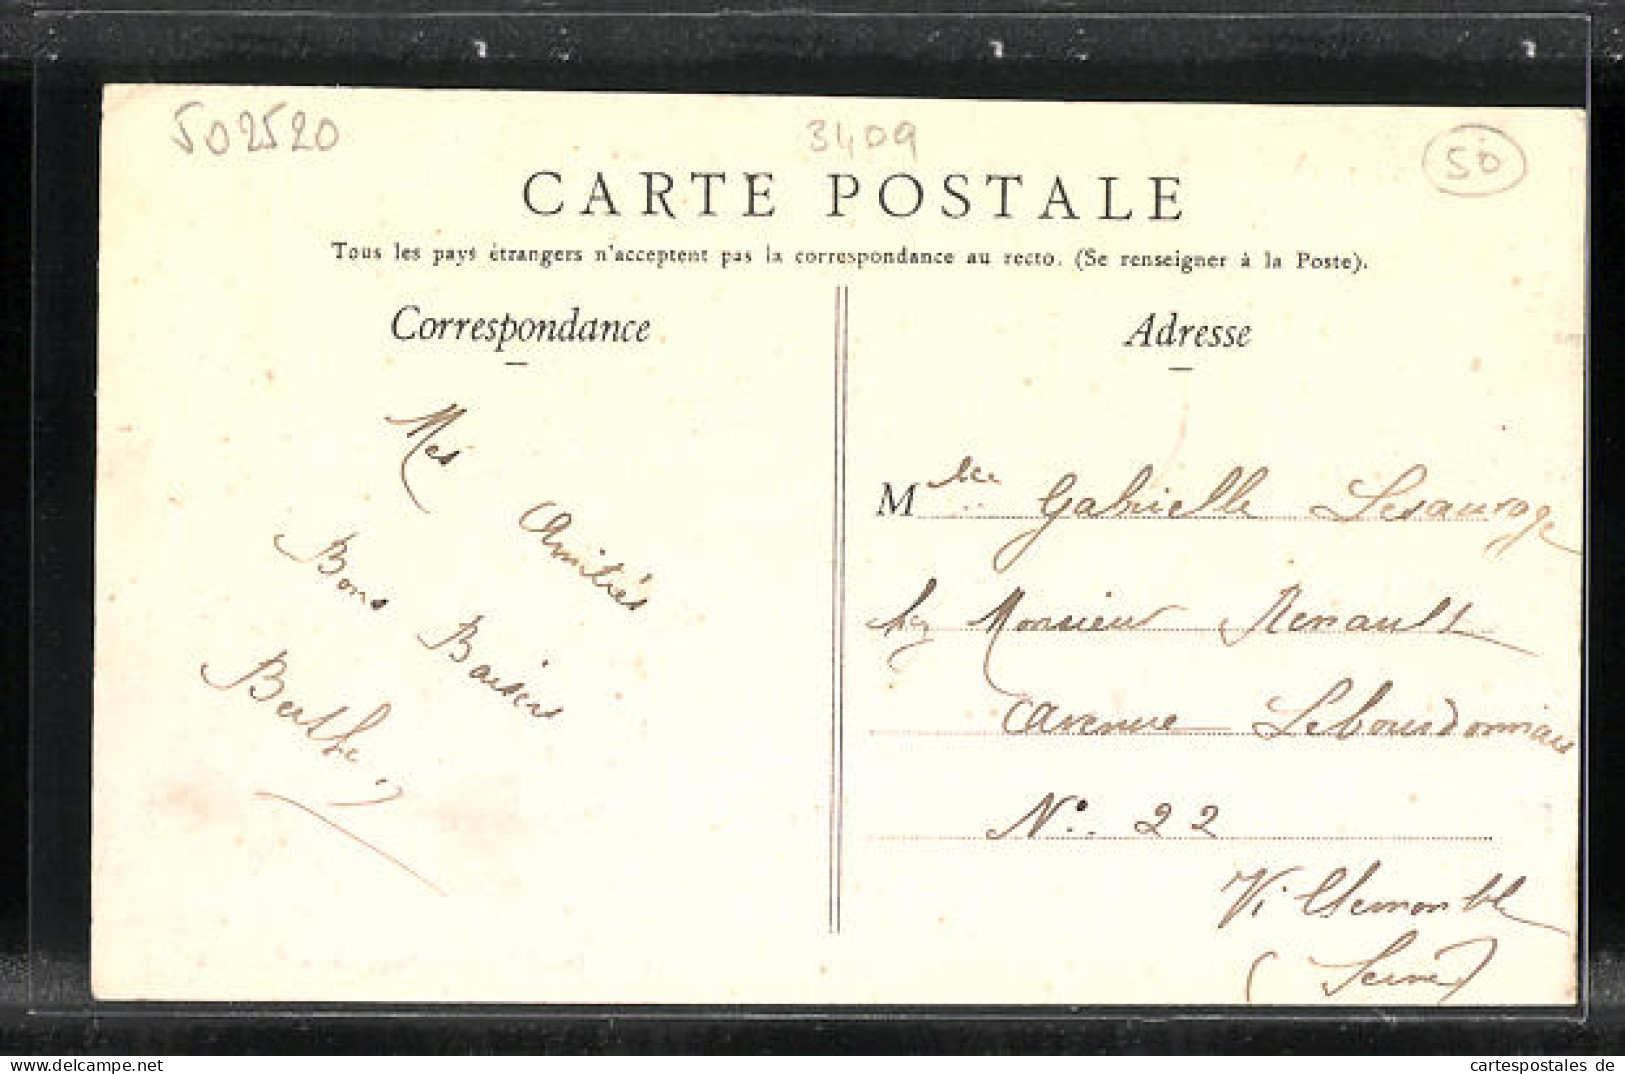 502520
3409
50
CARTE POSTALE
Tous les pays étrangers n'acceptent pas la correspondance au recto. (Se renseigner à la Poste).
Correspondance
Mes Amitiés
Bons Baisers
Berthe
Adresse
Mlle Gabrielle Lesauvage
chez Monsieur Renault
Avenue Lebourdonnais
No. 22
Villemomble
(Seine)
www.cartespostales.de
cartespostales de